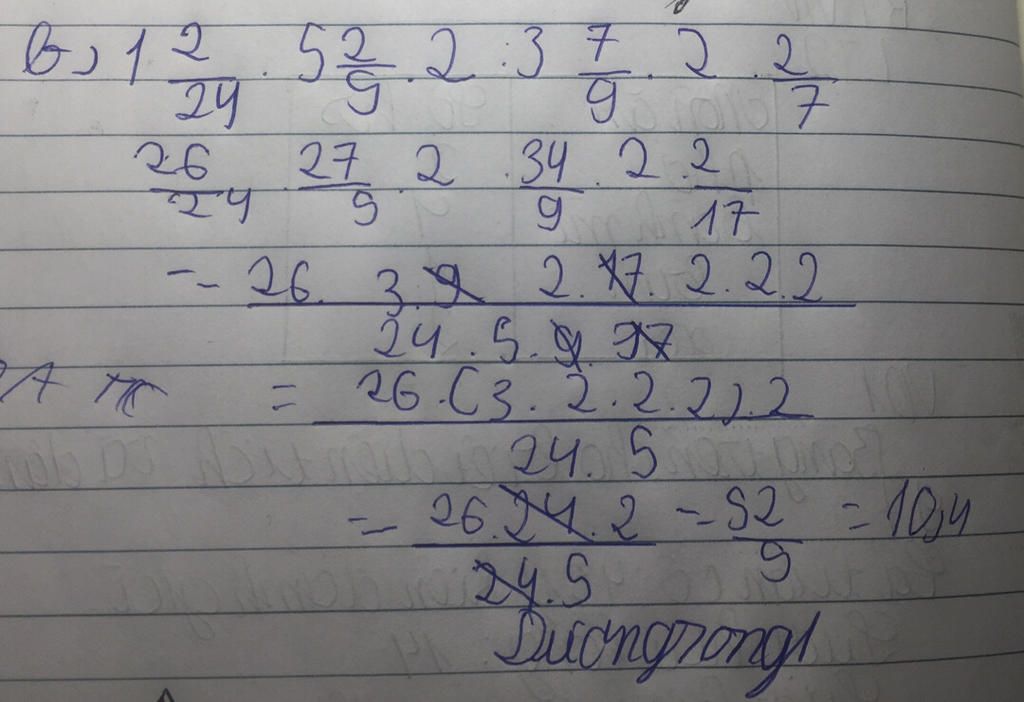 b, 1 2/24 . 5 2/9 . 2 . 3 7/9 . 2 . 2/7
26/24 . 27/5 . 2 . 34/9 . 2 . 2/17
= 26. 3.9 2.17. 2.2.2 / 24.5.9 17
= 26.(3.2.2.2).2 / 24.5
= 26.24.2 / 24.5 = 52/5 = 10,4
Duongrongl